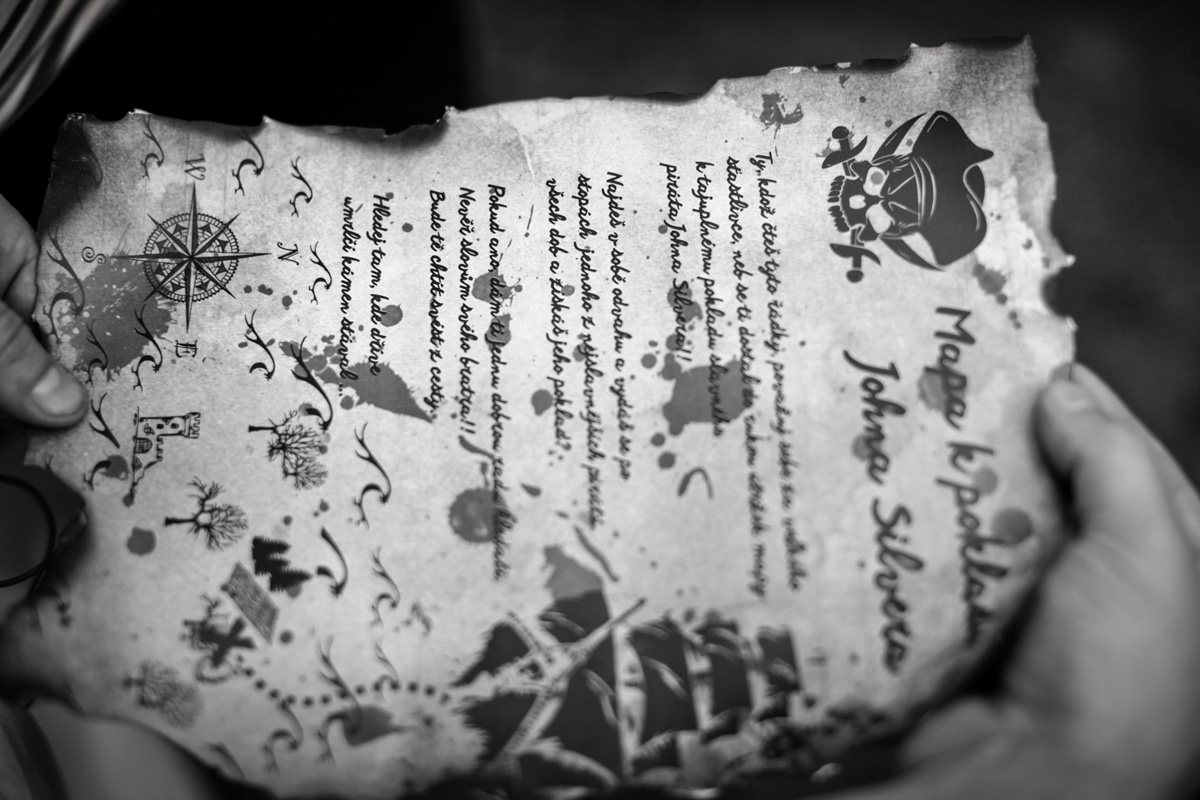 Mapa k pokladu
Johna Silvera
Ty, kdož čteš tyto řádky, považuj sebe za velkého
šťastlivce, neb se ti dostal do rukou útržek mapy
k tajuplnému pokladu slavného
piráta Johna Silvera!!
Najdeš v sobě odvahu a vydáš se po
stopách jednoho z nejslavnějších pirátů
všech dob a získáš jeho poklad?
Pokud ano dám ti jednu dobrou radu
Nevěř slovům svého bratra!!
Bude tě chtít svést z cesty.
Hledej tam, kde dříve
umrlčí kámen stával...
N
W
E
S